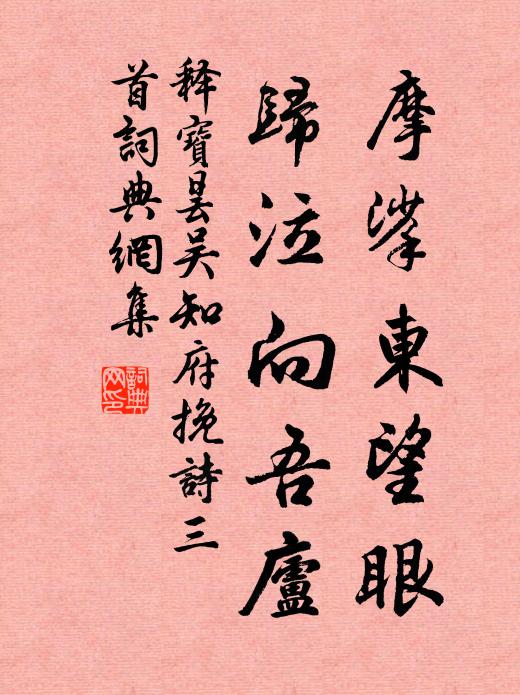 摩挲東望眼
歸泣向吾廬
释寶曇吴知府挽詩三
首詞典網集
詞典
网印